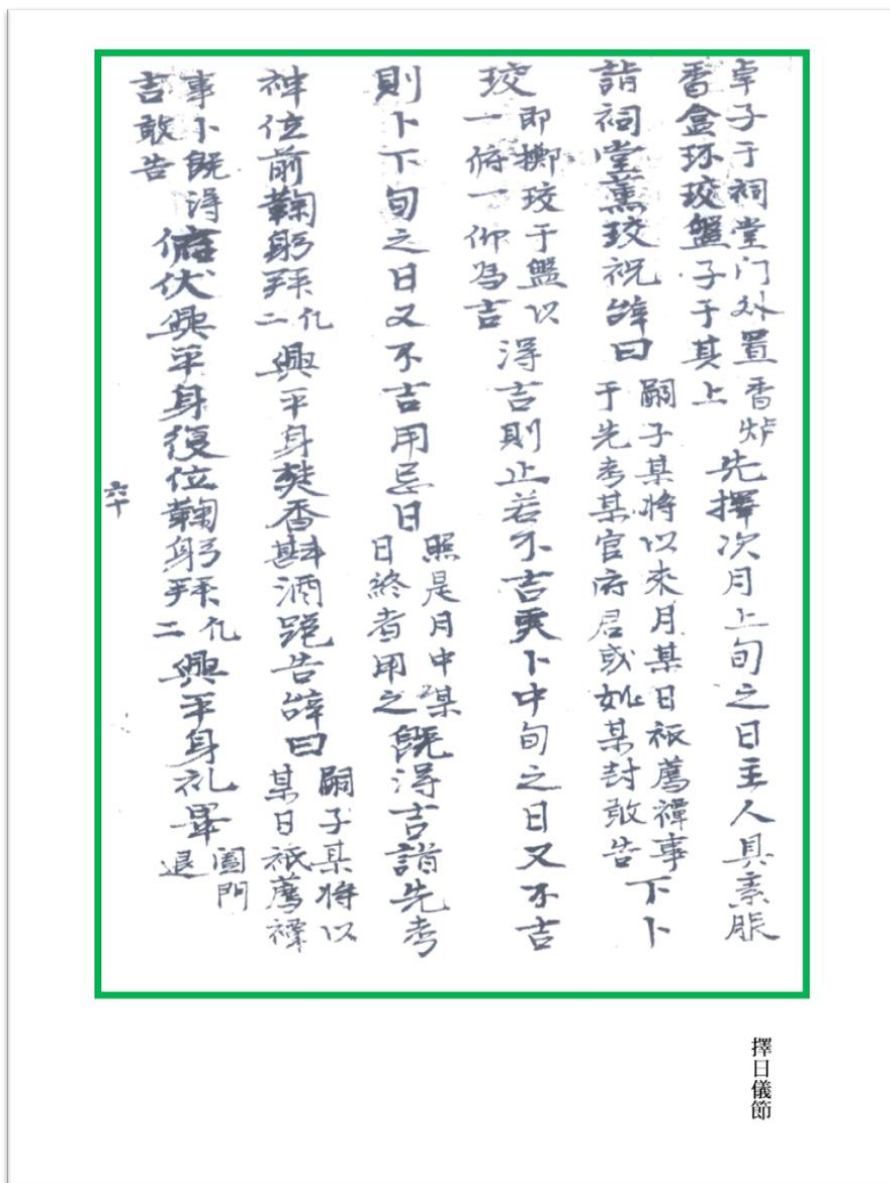 卓子于祠堂门外置香炉
香盒环珓盤子于其上
先擇次月上旬之日主人具素服
詣祠堂薰珓祝辞曰
嗣子某将以来月某日祇薦禫事
于先考某官府君或妣某封敢告
下卜
珓
即擲珓于盤以
一俯一仰爲吉
得吉則止若不吉更卜中旬之日又不吉
則卜下旬之日又不吉用忌日
照是月中某
日終者用之
既得吉詣先考
神位前鞠躬拜
凡
二
興平身焚香斟酒跪告辞曰
嗣子某将以
某日祇薦禫
事卜既得
吉敢告
俯伏興平身復位鞠躬拜
凡
二
興平身礼畢
闔門
退
六十
擇日儀節